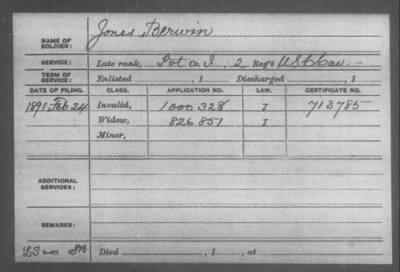 NAME OF SOLDIER: Jones, Berwin
SERVICE: Late rank, Pvt Co. I, 2 Reg't US Cav. —
TERM OF SERVICE: Enlisted , 1 Discharged , 1
DATE OF FILING. CLASS. APPLICATION NO. LAW. CERTIFICATE NO.
1891 Feb 24 Invalid, 1000 328 J 713785
Widow, 826 851 J
Minor,
ADDITIONAL SERVICES:
REMARKS:
Died , 1 , at